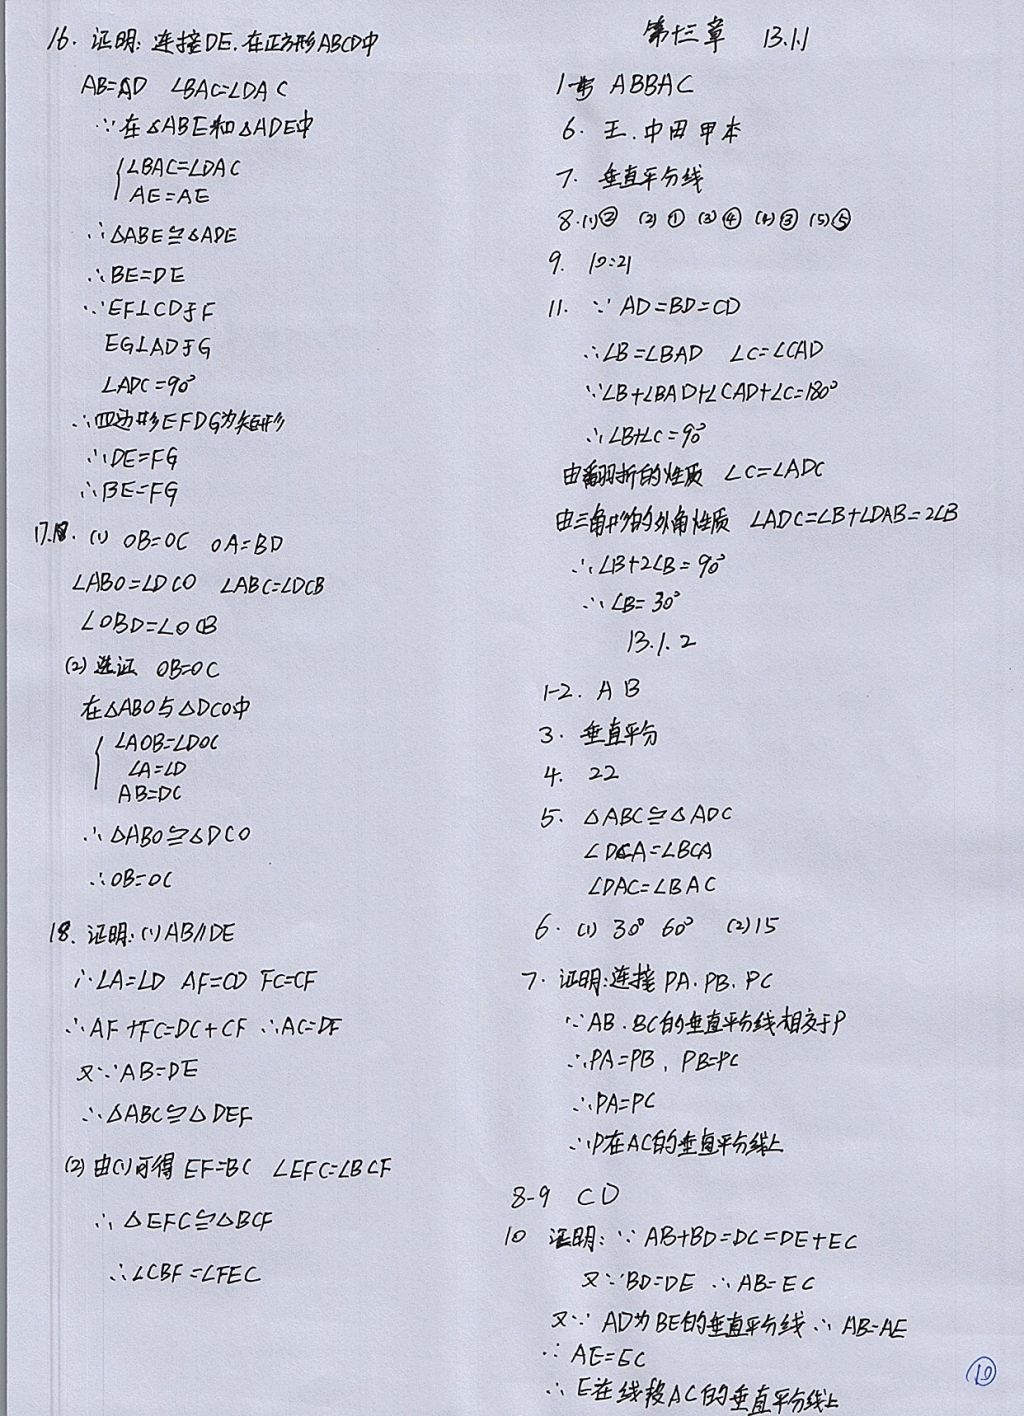 16. 证明: 连接DE.在正方形ABCD中
AB=AD ∠BAC=∠DAC
∵在△ABE和△ADE中
∠BAC=∠DAC
AE=AE
∴△ABE≌△ADE
∴BE=DE
∵EF⊥CD于F
EG⊥AD于G
∠ADC=90°
∴四边形EFDG为矩形
∴DE=FG
∴BE=FG
17. (1) OB=OC OA=BD
∠ABO=∠DCO ∠ABC=∠DCB
∠OBD=∠OCB
(2) 选证 OB=OC
在△ABO与△DCO中
∠AOB=∠DOC
∠A=∠D
AB=DC
∴△ABO≌△DCO
∴OB=OC
18. 证明:(1)AB∥DE
∴∠A=∠D AF=CD FC=CF
∴AF+FC=DC+CF ∴AC=DF
又∵AB=DE
∴△ABC≌△DEF
(2) 由(1)可得 EF=BC ∠EFC=∠BCF
∴△EFC≌△BCF
∴∠CBF=∠FEC
第十三章 13.1.1
1-5 ABBAC
6. 王.中田甲本
7. 垂直平分线
8.(1)② (2)① (3)④ (4)③ (5)⑤
9. 10:21
11. ∵AD=BD=CD
∴∠B=∠BAD ∠C=∠CAD
∵∠B+∠BAD+∠CAD+∠C=180°
∴∠B+∠C=90°
由翻折的性质 ∠C=∠ADC
由三角形的外角性质 ∠ADC=∠B+∠DAB=2∠B
∴∠B+2∠B=90°
∴∠B=30°
13.1.2
1-2. A B
3. 垂直平分
4. 22
5. △ABC≌△ADC
∠DCA=∠BCA
∠DAC=∠BAC
6. (1) 30° 60° (2)15
7. 证明:连接PA.PB.PC
∵AB.BC的垂直平分线相交于P
∴PA=PB, PB=PC
∴PA=PC
∴P在AC的垂直平分线上
8-9 CD
10 证明: ∵AB+BD=DC=DE+EC
又∵BD=DE ∴AB=EC
又∵AD为BE的垂直平分线∴AB=AE
∵AE=EC
∴E在线段AC的垂直平分线上
⑩